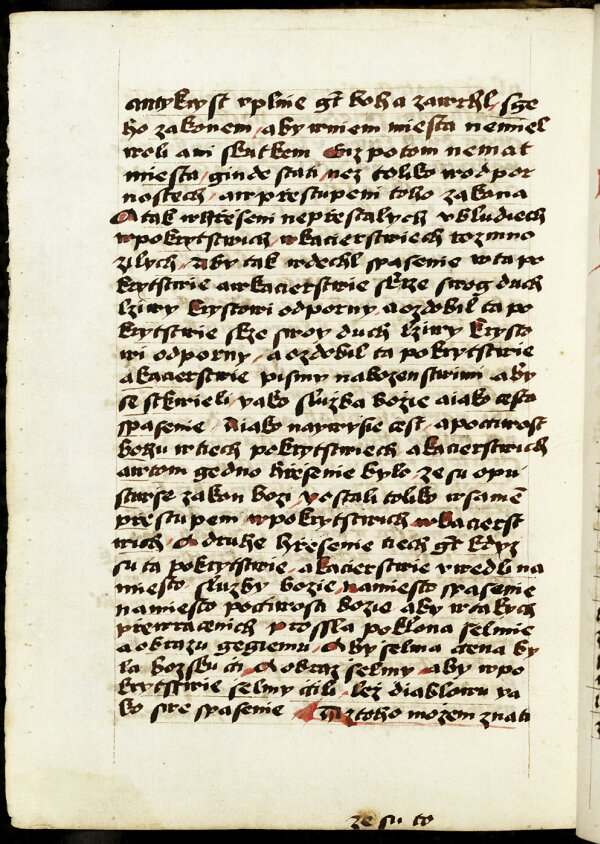 antykryst vplnie gt boha zawrhl / s ge
ho zakonem / aby w niem miesta nemiel
woli ani skutkem A iz potom nemat
miesta / ginde stati / nez toliko w odpor
nostech / a w prestupeni toho zakona
A tak w hreseni neprestalych v bludiech
w pokrytstwich / w kacierstwiech rozmno
zilych / Aby tak wdechl spasenie w ta po
krytstwie a w kacierstwie skrze swog duch
lziwy krystowi odporny / a ozdobil ta po
krytstwie skze swoy duch lziwy krysto
wi odporny / a ozdobil ta pokrytstwie
a kacierstwie pismy naboznenstwimi aby
se stkwieli yako sluzba bozie a iako cesta
spasenie / A iako naywyssie cest / a pocti wost
bohu w tiech pokrytstwiech a kacierstwich
a w tom gedno hresenie bylo / ze su opu
stiwse zakon bozi / yostali toliko w samē
prestupeni / w pokrytstwich / w kacierst
wich / A druhe hresenie tiech gt kdyz
su ta pokrytstwie / a kacierstwie vwedli na
miesto sluzby bozie / na miesto spasenie
na miesto poctiwosti bozie aby w takych
przewracenich / prossla poklona selmie
a obrazu gegiemu / A by selma ctena by
la bozsku cti / A obraz selmy / aby w po
krytstwie selmy ctili / lez diablowu ya
ko swe spasenie / A iz toho mozem znati
ze su to